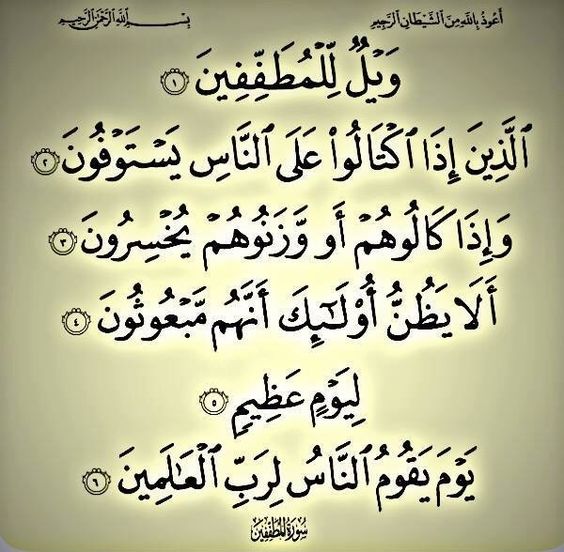 أعوذ بالله من الشيطان الرجيم بسم الله الرحمن الرحيم
وَيۡلٌ لِّلۡمُطَفِّفِينَ ١
ٱلَّذِينَ إِذَا ٱكۡتَالُواْ عَلَى ٱلنَّاسِ يَسۡتَوۡفُونَ ٢
وَإِذَا كَالُوهُمۡ أَو وَّزَنُوهُمۡ يُخۡسِرُونَ ٣
أَلَا يَظُنُّ أُوْلَٰٓئِكَ أَنَّهُم مَّبۡعُوثُونَ ٤
لِيَوۡمٍ عَظِيمٖ ٥
يَوۡمَ يَقُومُ ٱلنَّاسُ لِرَبِّ ٱلۡعَٰلَمِينَ ٦
سورة المطففين